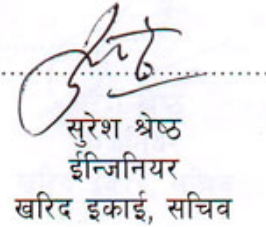 सुरेश श्रेष्ठ
ईन्जिनियर
खरिद इकाई, सचिव